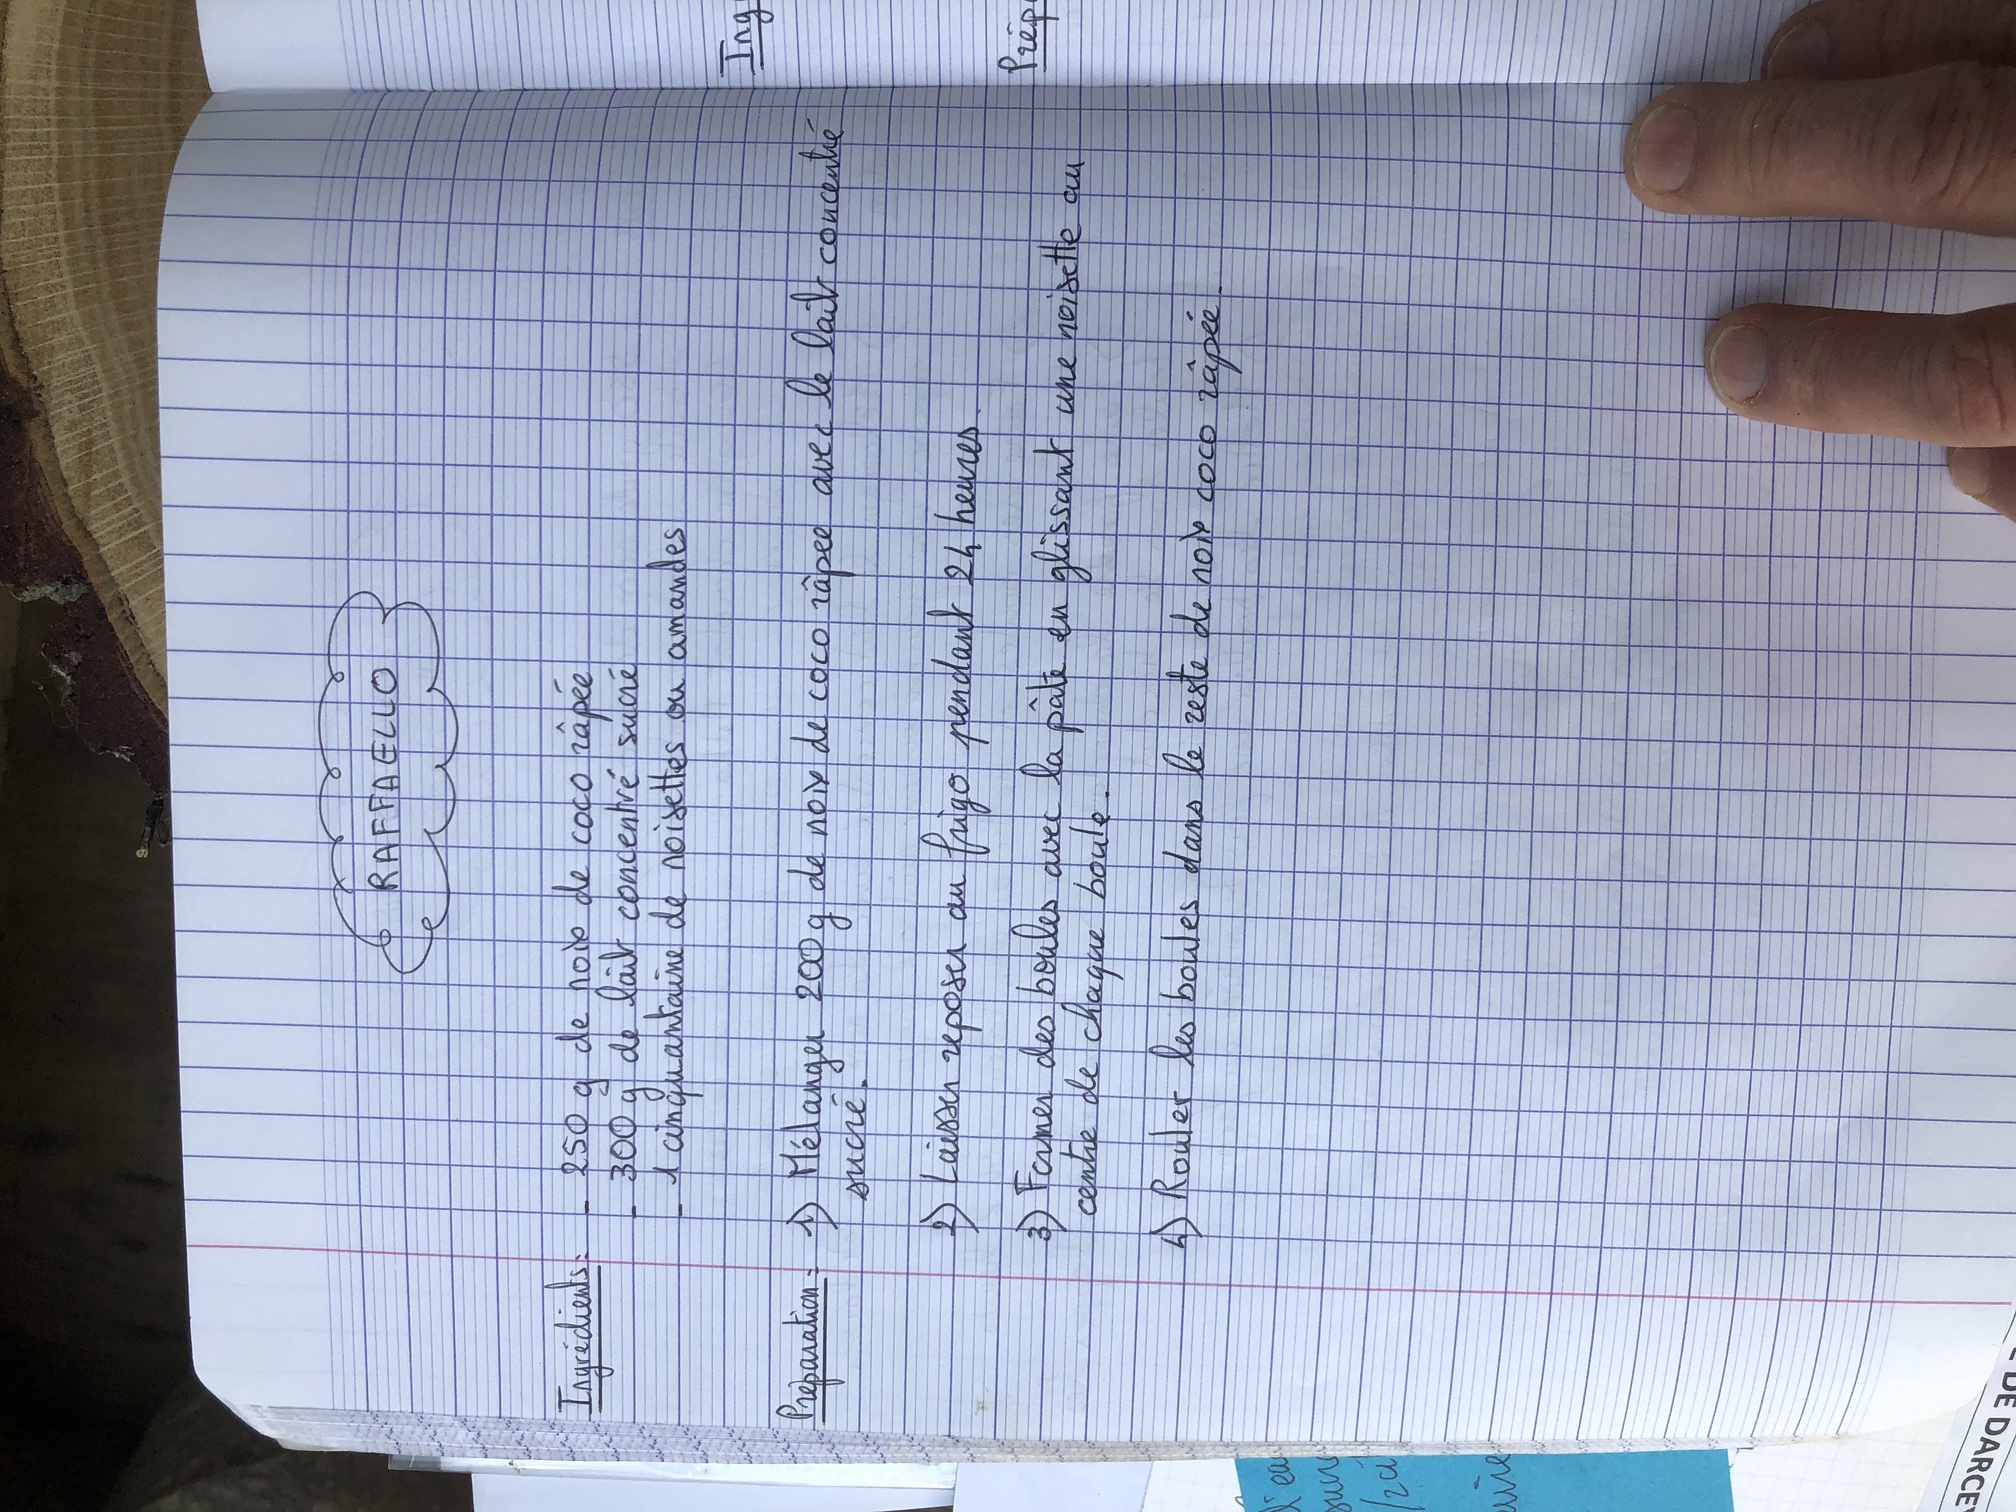 RAFFAELLO
Ingrédients: - 250 g de noix de coco râpée
- 300 g de lait concentré sucré
- 1 cinquantaine de noisettes ou amandes
Préparation: 1) Mélanger 200g de noix de coco râpée avec le lait concentré
sucré.
2) Laisser reposer au frigo pendant 24 heures.
3) Former des boules avec la pâte en glissant une noisette au
centre de chaque boule.
4) Rouler les boules dans le reste de noix coco râpée.
Ing
Prép
DE DARCE